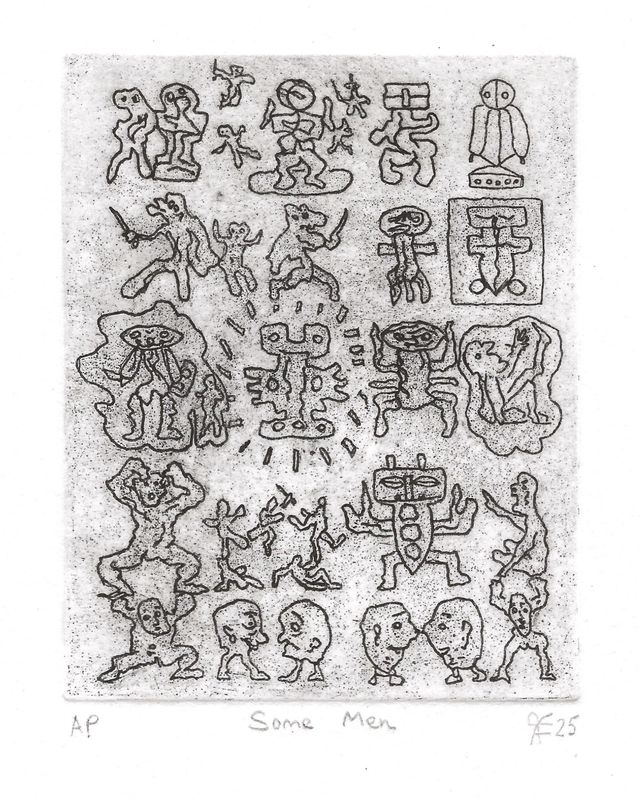 AP Some Men Æ 25